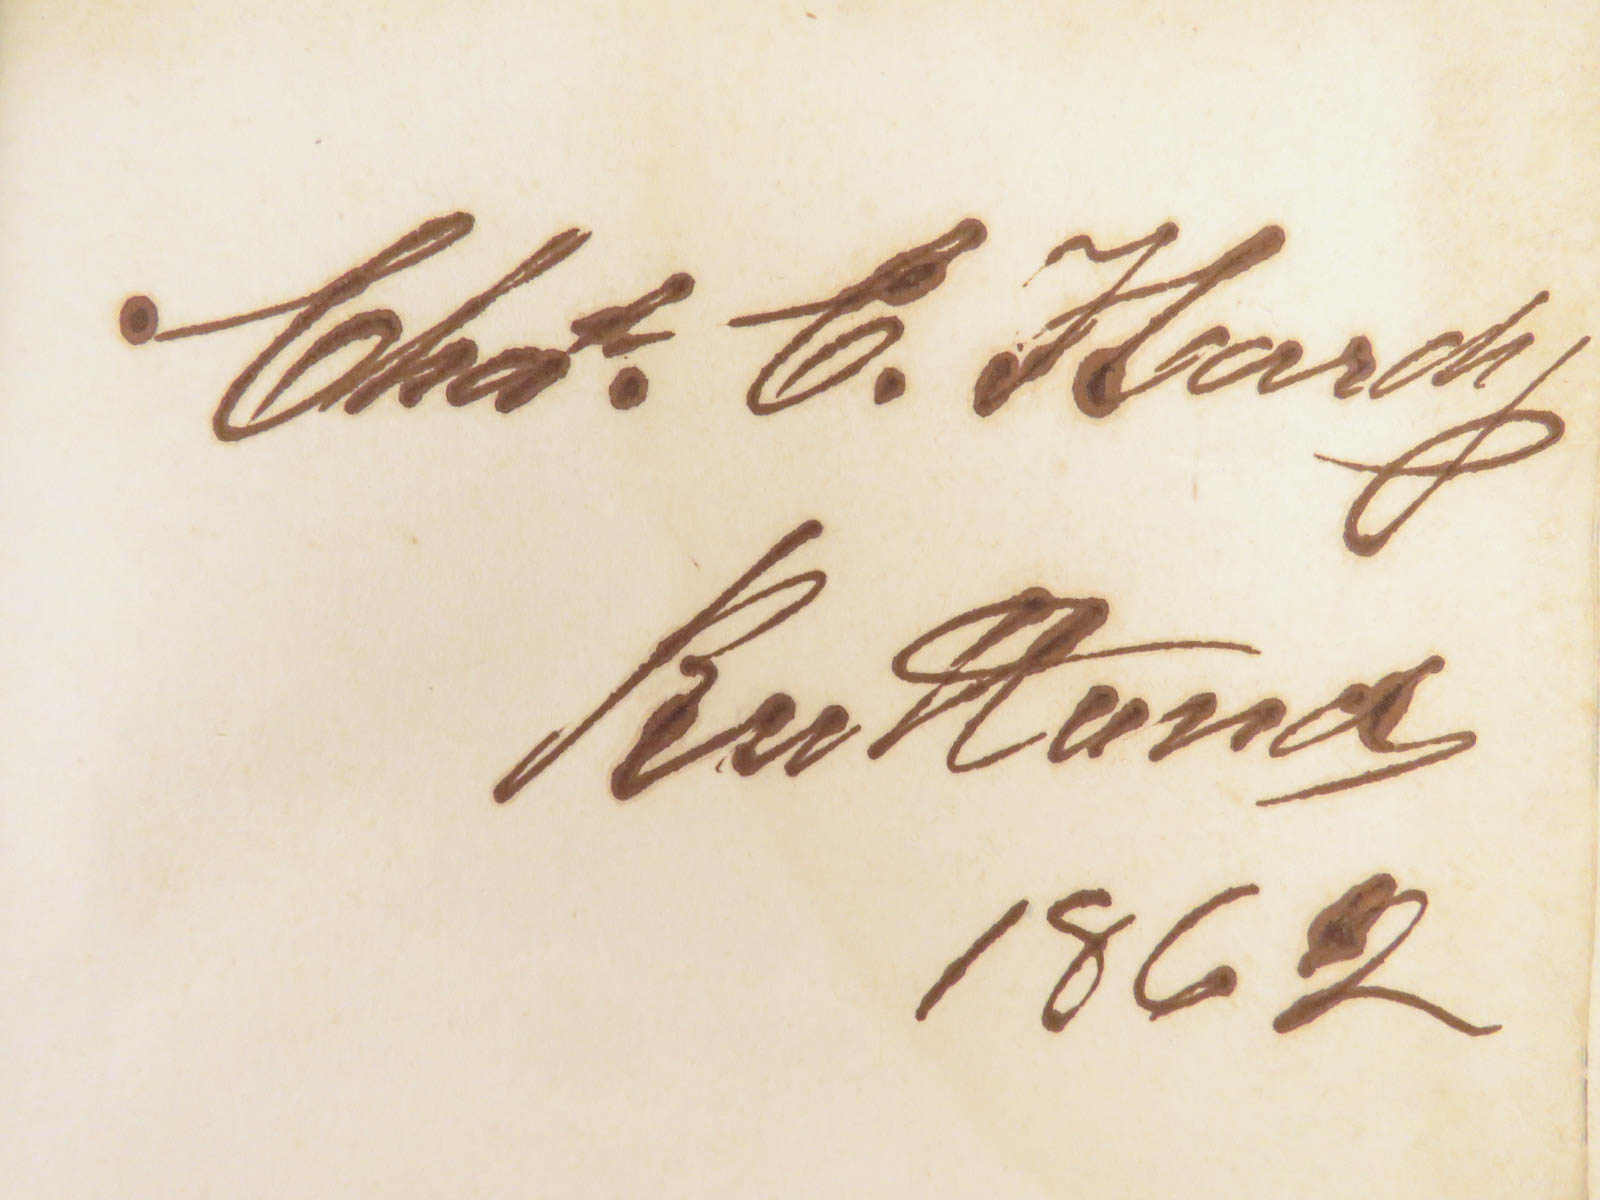 Chas. C. Hardy
Rutland
1862